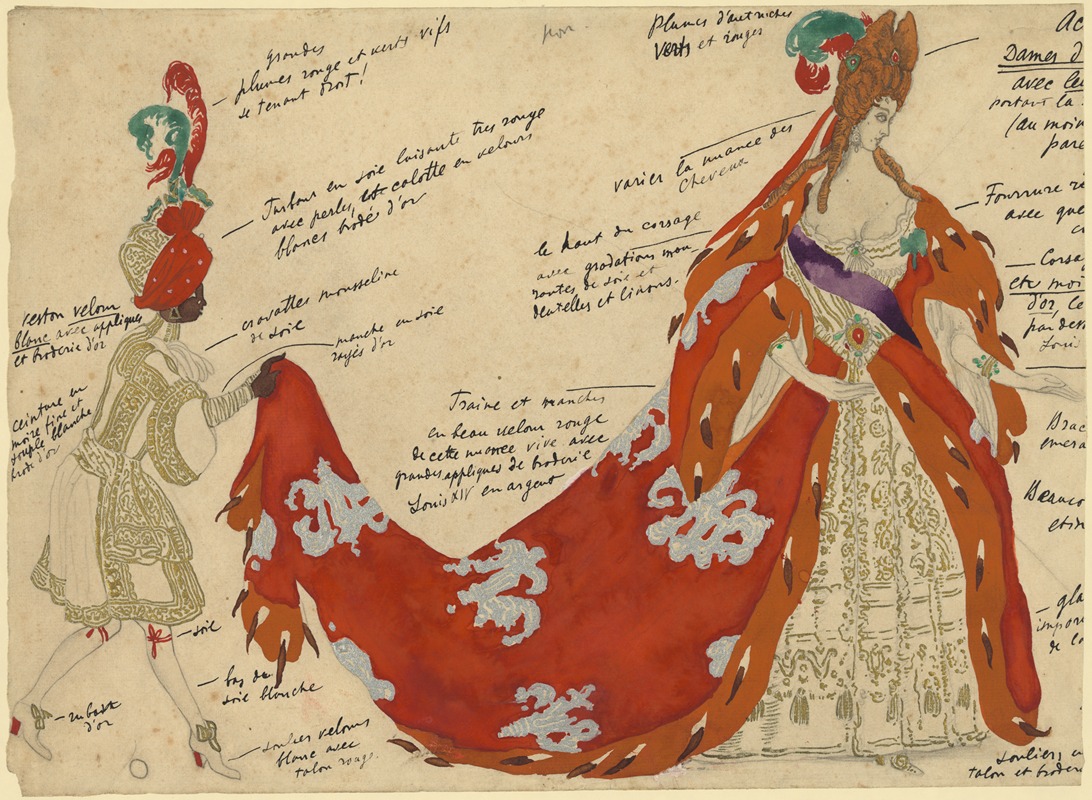 grandes
plumes rouge et verts vifs
se tenant droit!
Turban en soie luisante tres rouge
avec perles, et calotte en velours
blancs brodés d'or
cravattes mousseline
de soie
manche en soie
rayés d'or
veston velour
blanc avec appliques
et broderie d'or
ceinture en
moire fine et
souple blanche
brodé d'or
soie
bas de
soie blanche
rubans
d'or
soulier velours
blanc avec
talon rouge.
Plumes d'autruches
Verts et rouges
varier la nuance des
cheveux
le haut du corsage
avec gradations mou
rantes de soie et
dentelles et linons.
Traine et manches
en beau velour rouge
de cette nuance vive avec
grandes appliques de broderie
Louis XIV en argent
Ac
Dames d
avec le
portant la
(au moin
pare
Fourrure re
avec que
Corsa
etc moi
d'or, le
par des
Louis
Brac
emera
Beauco
et in
gla
impor
de lo
Souliers
talon et broder